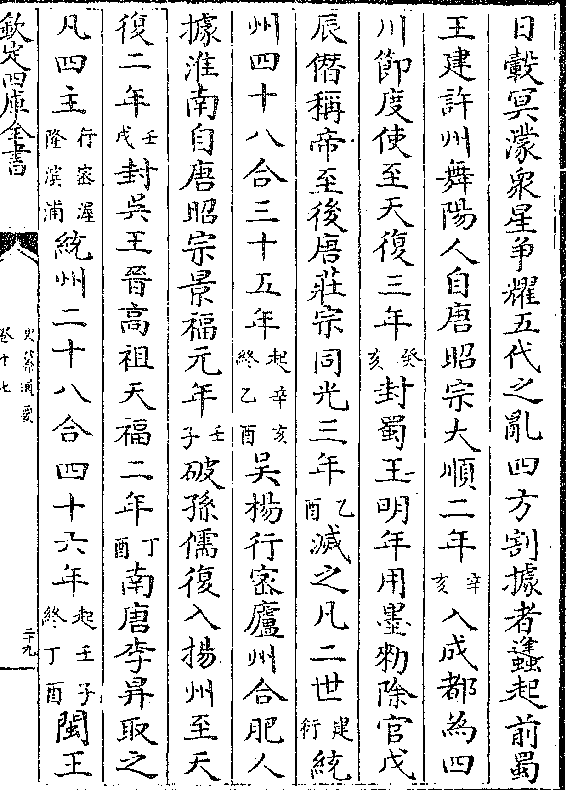 日轂冥濛衆星爭耀五代之亂四方割據者蠭起前蜀
王建許州舞陽人自唐昭宗大順二年辛亥入成都為四
川節度使至天復三年癸亥封蜀王明年用墨勑除官戊
辰僭稱帝至後唐莊宗同光三年乙酉滅之凡二世建衍統
州四十八合三十五年起辛亥終乙酉吳楊行密廬州合肥人
據淮南自唐昭宗景福元年壬子破孫儒復入揚州至天
復二年壬戌封吳王晉高祖天福二年丁酉南唐李昪取之
凡四主行密渥隆演溥統州二十八合四十六年起壬子終丁酉閩王
欽定四庫全書
卷十七
二十九